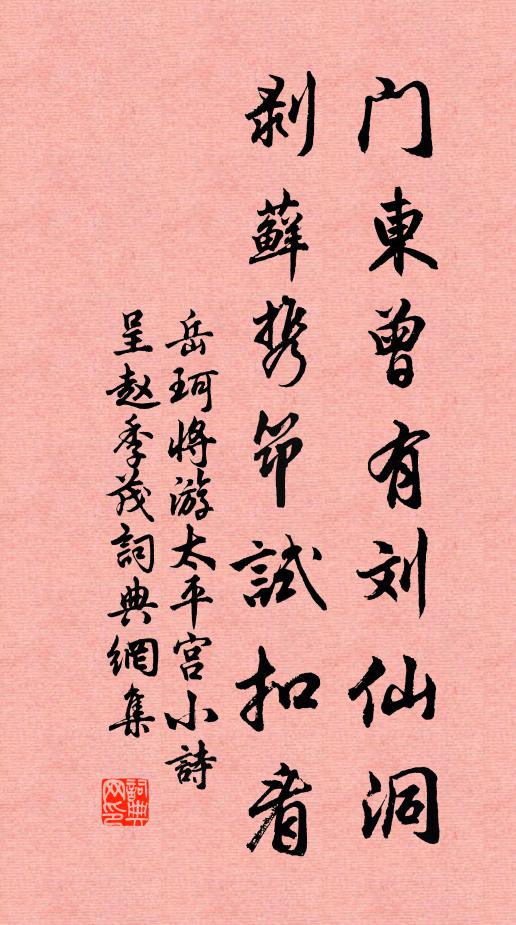 门東曾有刘仙洞
剥蘚携筇試扣看
岳珂将游太平宫小詩
呈赵季茂詞典網集
詞典网印